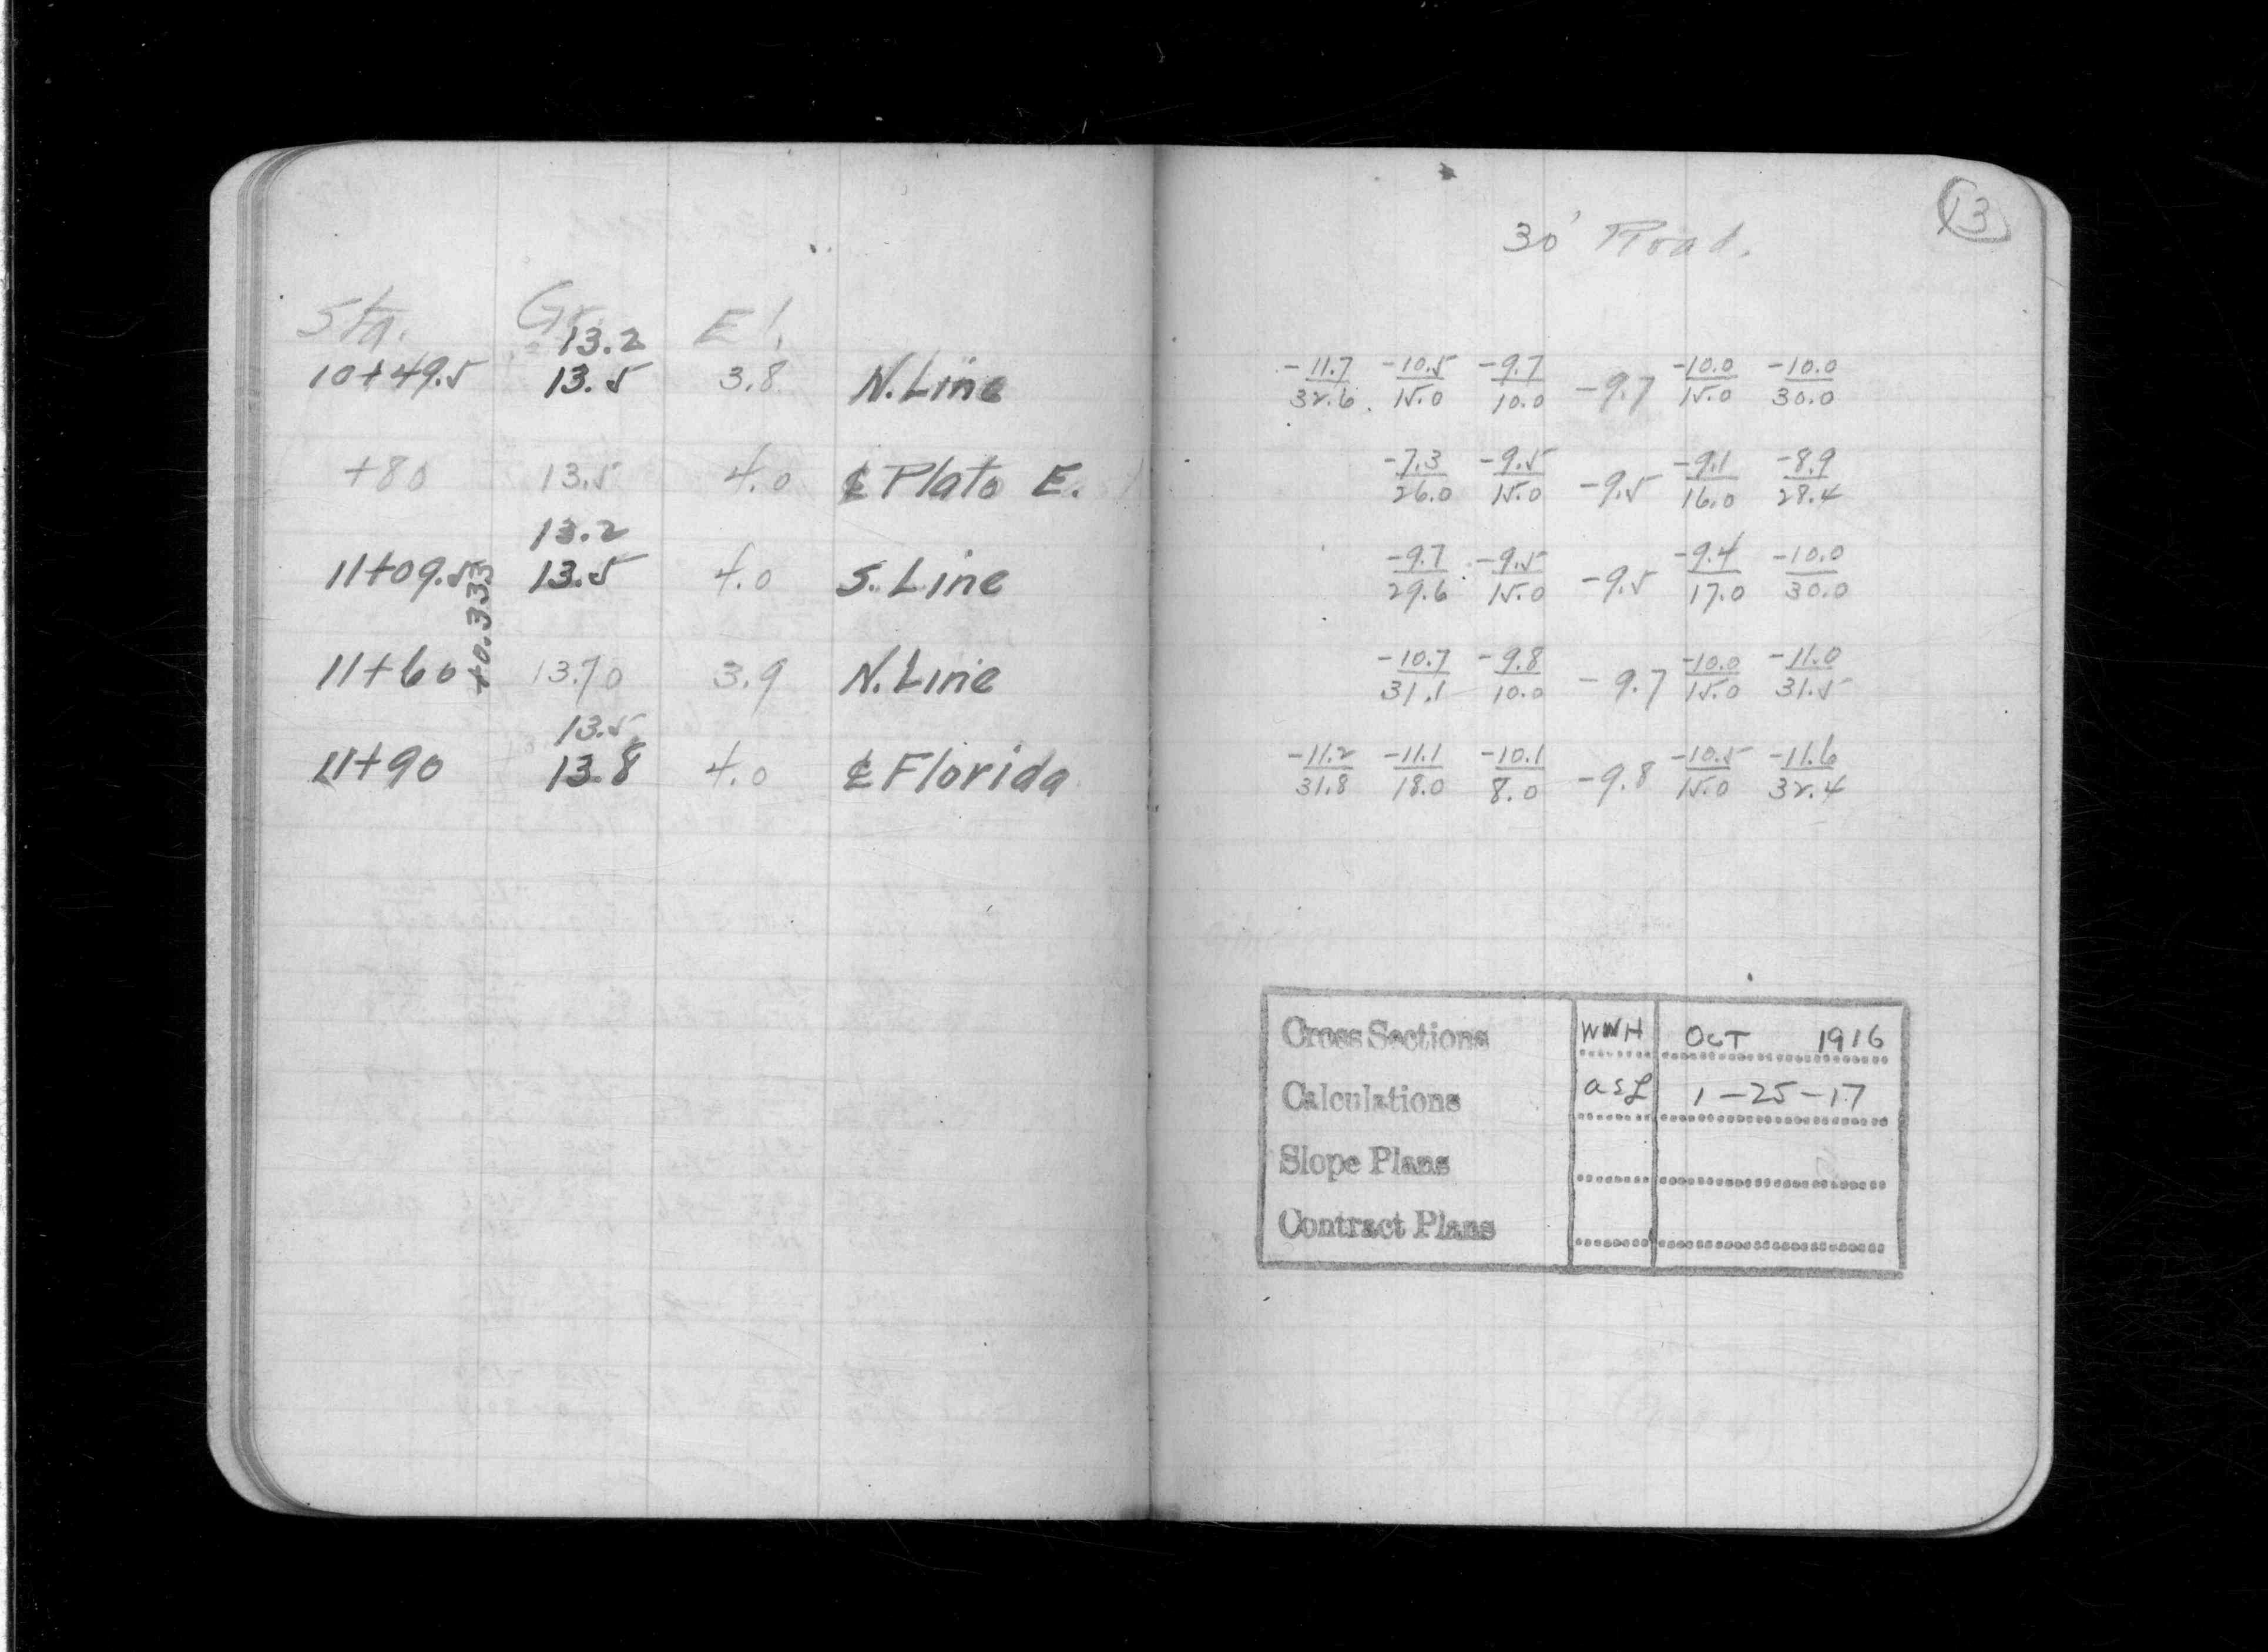 Sta. Gr. El.
13.2
10+49.5 13.5 3.8 N. Line
+80 13.5 4.0 ℄ Plato E.
13.2
11+09.5 13.5 4.0 S. Line
+0.333
11+60 13.70 3.9 N. Line
13.5
11+90 13.8 4.0 ℄ Florida
13
30' Road.
-11.7 -10.5 -9.7 -10.0 -10.0
32.6 15.0 10.0 -9.7 15.0 30.0
-7.3 -9.5 -9.1 -8.9
26.0 15.0 -9.5 16.0 28.4
-9.7 -9.5 -9.4 -10.0
29.6 15.0 -9.5 17.0 30.0
-10.7 -9.8 -10.0 -11.0
31.1 10.0 -9.7 15.0 31.5
-11.2 -11.1 -10.1 -10.5 -11.6
31.8 18.0 8.0 -9.8 15.0 32.4
Cross Sections WWH OCT 1916
Calculations asL 1-25-17
Slope Plans
Contract Plans